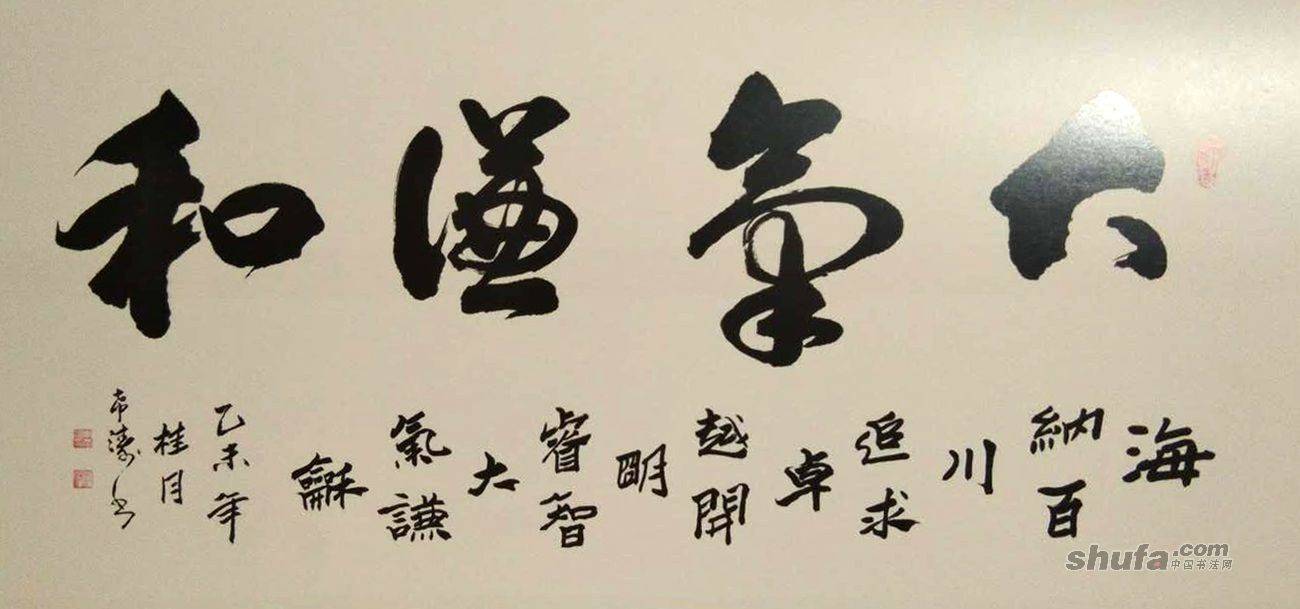 大氣謙和
海
納百
川
追求
卓
越開
明
睿智
大
氣謙
龢
乙未年
桂月
shufa.com
中国书法网